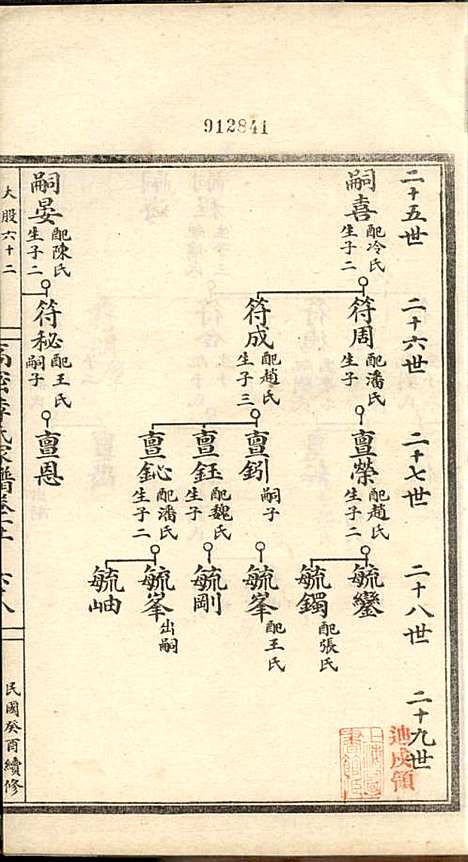 912841
二十五世
二十六世
二十七世
二十八世
二十九世
嗣喜
配冷氏
生子二
符周
配潘氏
生子
亶榮
配趙氏
生子二
毓鑾
毓鐲
配張氏
符成
配趙氏
生子三
亶釖
嗣子
毓峯
配王氏
亶鈺
配魏氏
生子
毓剛
亶鉍
配潘氏
生子二
毓峯
出嗣
毓岫
嗣晏
配陳氏
生子二
符秘
配王氏
嗣子
亶恩
大股六十二
民國癸酉續修